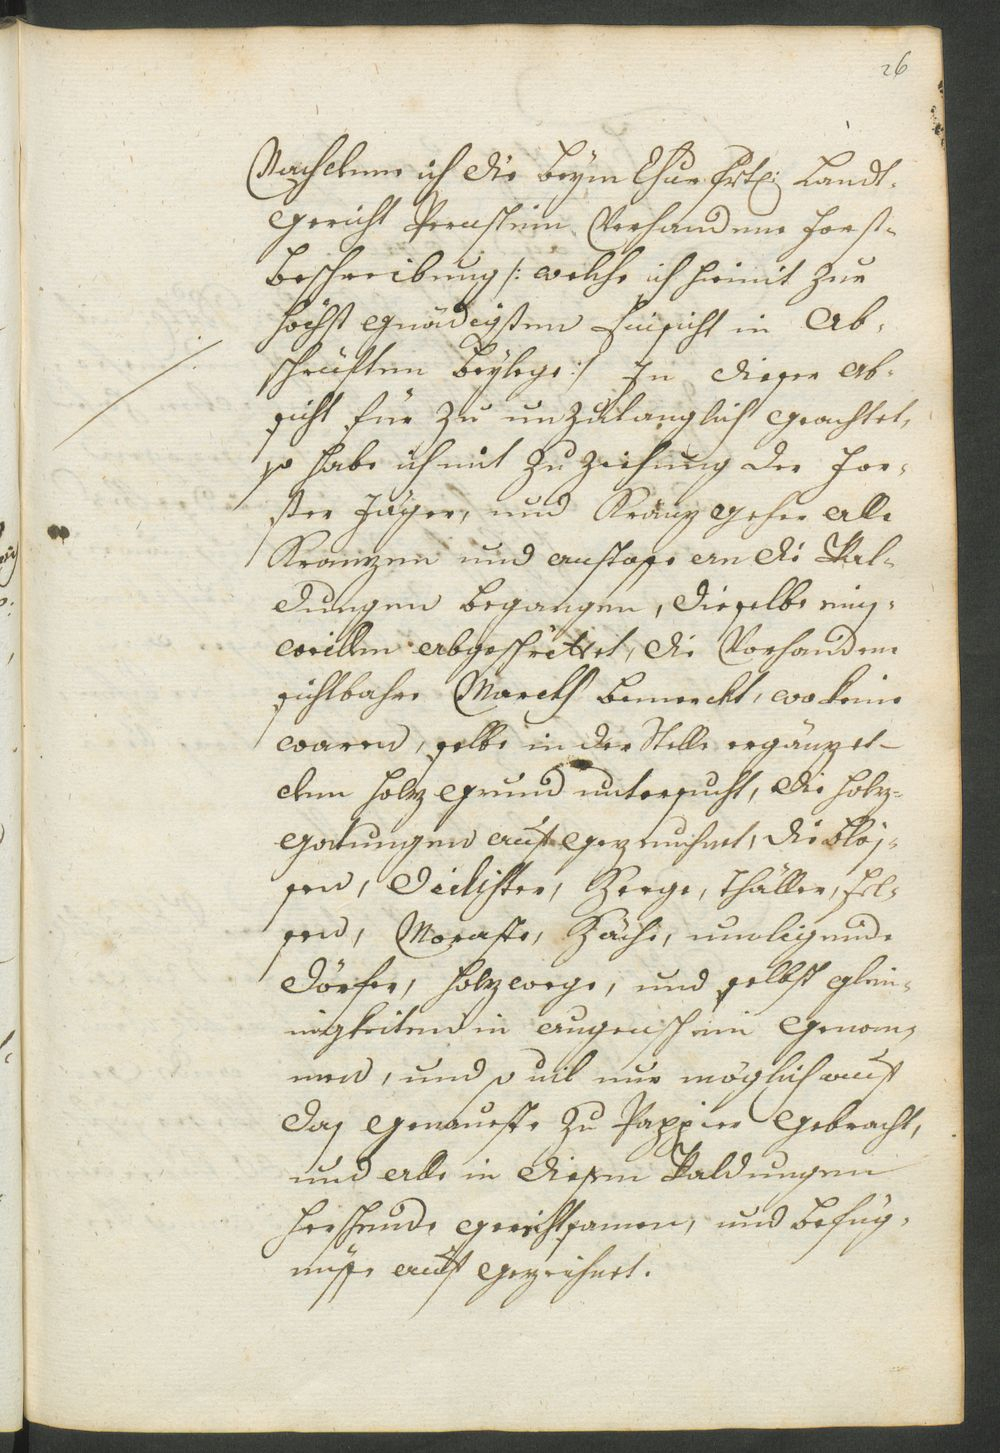 26
Nachdeme ich die beym Churfrtl: Landt-
Gericht Pernstein Verhandene Forst-
beschreibung /: welche ich hiemit zur
höchst gnädigsten Einsicht in Ab-
schrüften beylege :/ In dieser Ab-
sicht für zu unzulänglich geachtet,
so habe ich mit Zuziehung der För-
ster Jäger, und Kränzgeher alle
Kränzen und anstösse an die Wal-
dungen begangen, dieselbe einß-
weillen abgeschrittet, die Vorhandene
sichtbahre March bemerckt, wo keine
waren, selbe in der Stelle ergänzet
den Holzgrund untersucht, die Holz-
gattungen auf gezeichnet, die Blös-
sen, Dickhter, Berge, Thäller, Fel-
sen, Moraste, Bäche, umligende
Dörfer, Holzweege, und selbst Klei-
nigkeiten in augenschein genom-
men, und so vil nur möglich auf
das genaueste zu Pappier gebracht,
und alle in diesen Waldungen
herschende gerechtsamen, und befug-
nüsse auf gezeichnet.